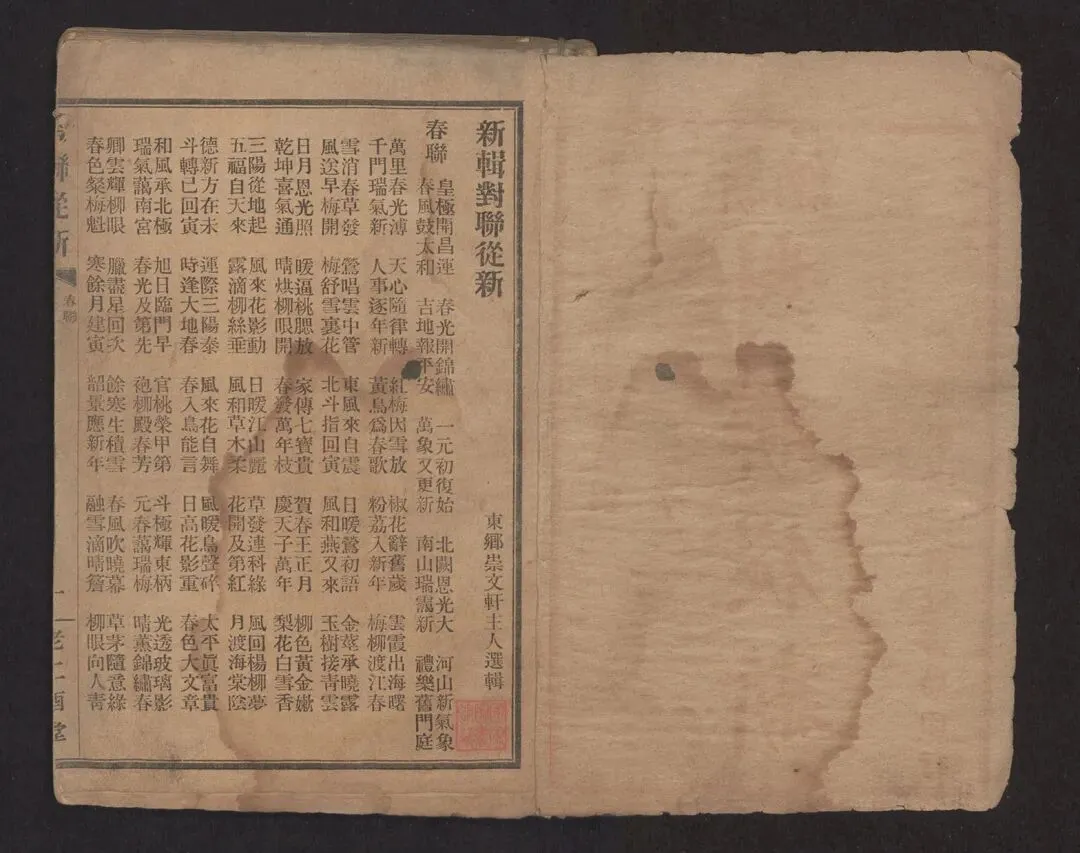 新輯對聯從新
東鄉崇文軒主人選輯
春聯
皇極開昌運 春光開錦繡 一元初復始 北闕恩光大 河山新氣象
春風鼓太和 吉地報平安 萬象又更新 南山瑞靄新 禮樂舊門庭
萬里春光溥 天心隨律轉 紅梅因雪放 椒花辭舊歲 雲霞出海曙
千門瑞氣新 人事逐年新 黃鳥爲春歌 粉荔入新年 梅柳渡江春
雪消春草發 鶯唱雲中管 東風來自震 日暖鶯初語 金莖承曉露
風送早梅開 梅舒雪裏花 北斗指回寅 風和燕又來 玉樹接靑雲
日月恩光照 暖逼桃腮放 家傳七寶貴 賀春王正月 柳色黃金嫩
乾坤喜氣通 晴烘柳眼開 春發萬年枝 慶天子萬年 梨花白雪香
三陽從地起 風來花影動 日暖江山麗 草發連科綠 風回楊柳夢
五福自天來 露滴柳絲垂 風和草木柔 花開及第紅 月渡海棠陰
德新方在未 運際三陽泰 風來花自舞 風暖鳥聲碎 太平眞富貴
斗轉已回寅 時逢大地春 春入鳥能言 日高花影重 春色大文章
和風承北極 旭日臨門早 官桃榮甲第 斗極輝東柄 光透玻璃影
瑞氣藹南宮 春光及第先 柳殿春芳 元春藹瑞梅 晴薰錦繡春
卿雲輝柳眼 臘盡星回次 餘寒生積雪 春風吹曉幕 草茅隨意綠
春色粲梅魁 寒餘月建寅 韶景應新年 融雪滴晴簷 柳眼向人靑
聯從新
春聯
一
老二酉堂